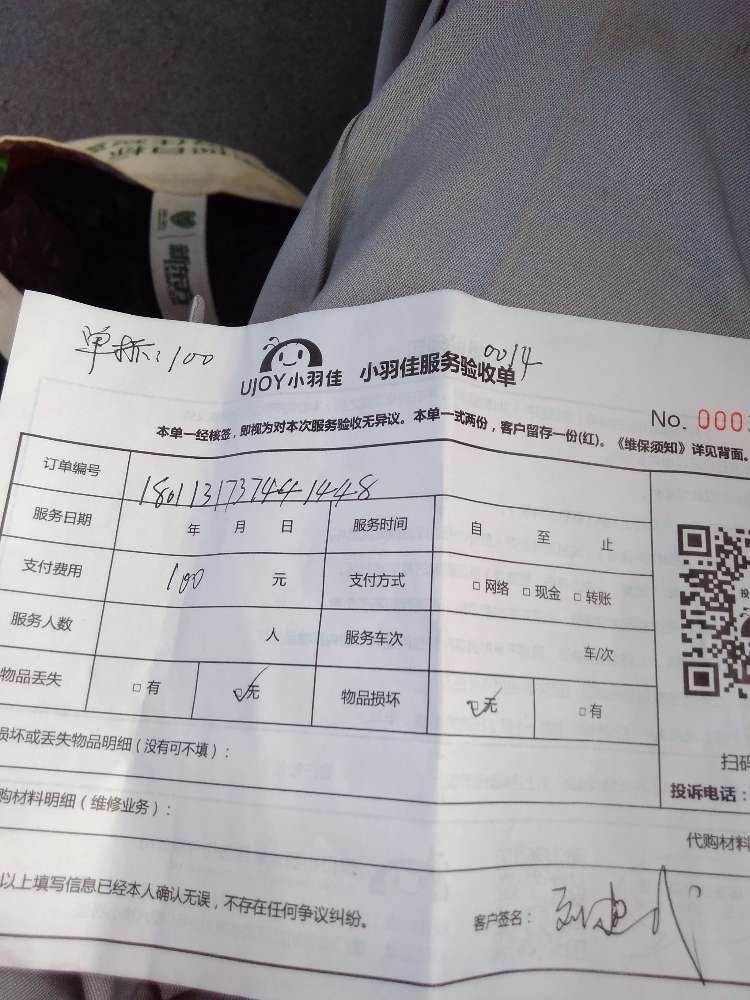 单拆：100
UJOY小羽佳 小羽佳服务验收单 0014
No. 000
本单一经核签，即视为对本次服务验收无异议。本单一式两份，客户留存一份(红)。《维保须知》详见背面。
订单编号 18011317374441448
服务日期 年 月 日 服务时间 自 至 止
支付费用 100 元 支付方式 □网络 □现金 □转账
服务人数 人 服务车次 车/次
物品丢失 □有 ☑无 物品损坏 ☑无 □有
损坏或丢失物品明细（没有可不填）：
扫码
投诉电话：
购材料明细（维修业务）：
代购材料
以上填写信息已经本人确认无误，不存在任何争议纠纷。
客户签名：